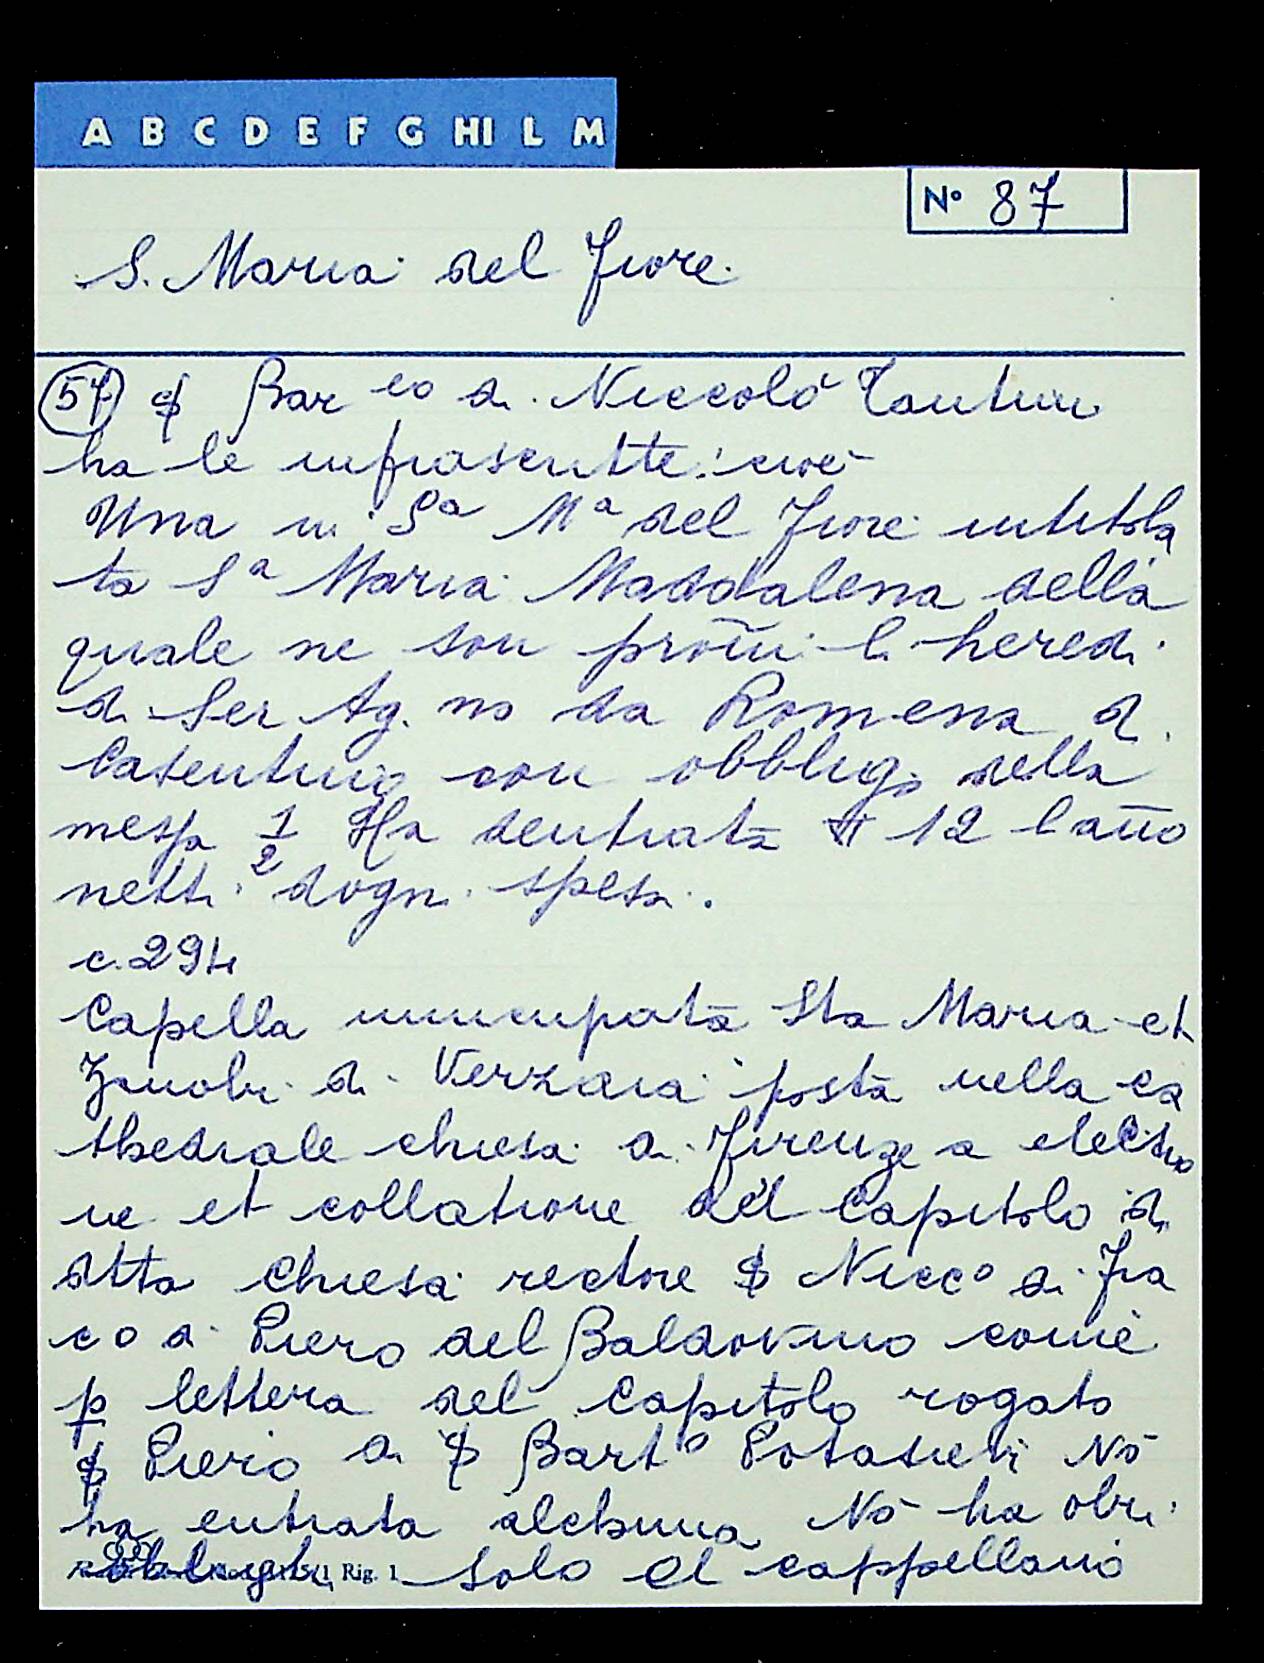 A B C D E F G HI L M
N° 87
S. Maria del Fiore
57 Bar eo di Niccolò
ha le infrascritte: cioè
Una in Sª Mª del Fiore intitola
ta Sª Maria Maddalena della
quale ne son li heredi
di Ser Ag.no da Romena di
Casentino con obbligo della
messa 1/2 Ha dentrata 12 l anno
netti dogni spesa.
c. 294
Capella nuncupata Sta Maria et
Zenobi di posta nella ca
thedrale chiesa di Firenze a electio
ne et collatione del Capitolo di
dtta Chiesa rectore Nicc° di Fra
co di Piero del Baldovino come
p lettera del Capitolo rogato
Piero di Bart° Nō
ha entrata alchuna Nō ha
oblighi solo el cappellano
Rig. 1